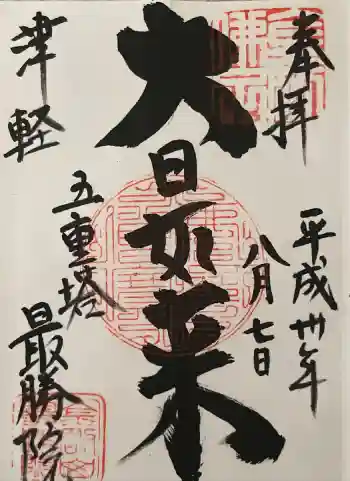 奉拝
平成卅年
八月七日
大日如来
五重塔
津軽
最勝院